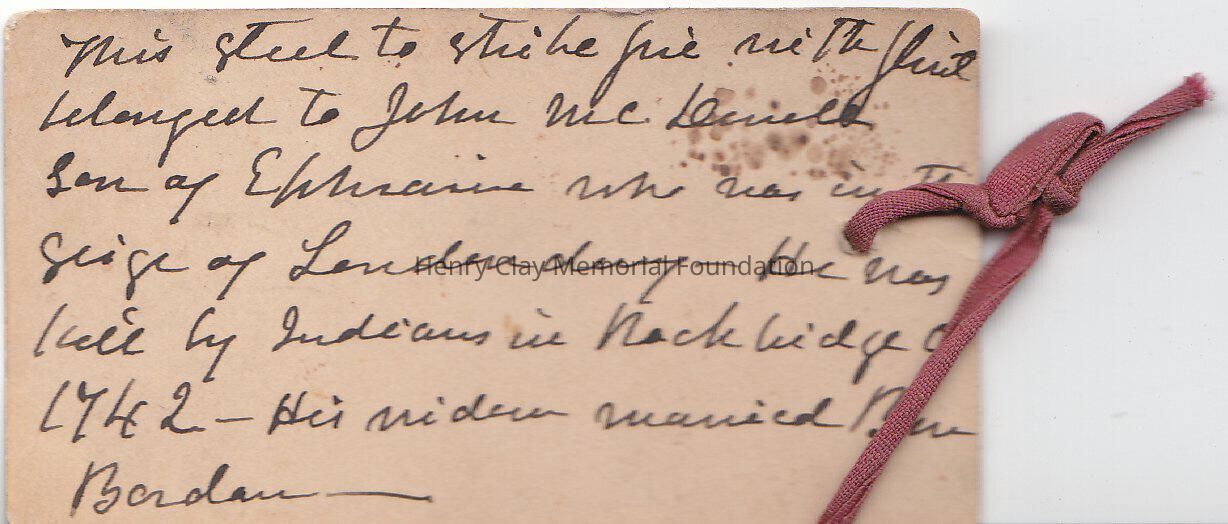 This steel to strike fire with flint
belonged to John McDowell
Son of Ephraim who was in th
Seige of Londonderry He was
kill by Indians in Rockbridge C
1742 — His widow married Ben
Bordan —
Henry Clay Memorial Foundation